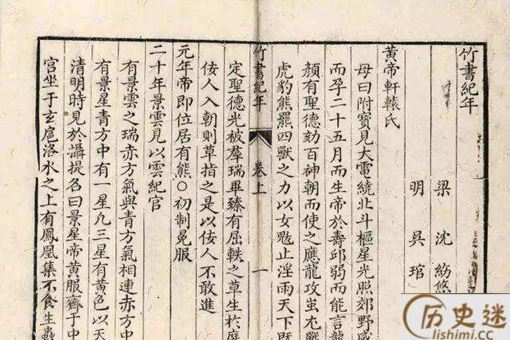 竹書紀年
梁 沈約悠
明 吳琯
黃帝軒轅氏
母曰附寶見大電繞北斗樞星光照郊野感
而孕二十五月而生帝於壽邱弱而能言龍
顏有聖德劾百神朝而使之應龍攻蚩尤戰
虎豹熊羆四獸之力以女魃止淫雨天下旣
竹書紀年 卷上 一
定聖德光被羣瑞畢臻有屈軼之草生於庭
佞人入朝則草指之是以佞人不敢進
元年帝即位居有熊○初制冕服
二十年景雲見以雲紀官
有景雲之瑞赤方氣與青方氣相連赤方中
有景星青方中有一星凡三星有黃色以天
清明時見於攝提名曰景星帝黃服齋于中
宮坐于玄扈洛水之上有鳳凰集不食生蟲
历史迷
lishimi.cc